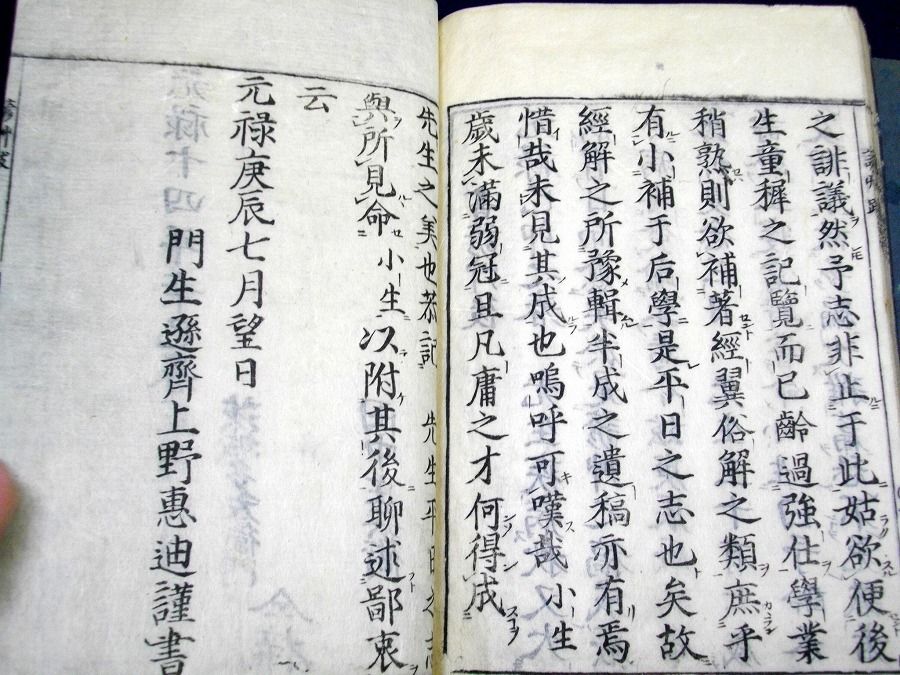 之誹議然予志非止于此姑欲便後
生童穉之記覽而已齡過強仕學業
稍熟則欲補著經翼俗解之類庶乎
有小補于后學是平日之志也矣故
經解之所豫輯半成之遺稿亦有焉
惜哉未見其成也嗚呼可嘆哉小生
歲未滿弱冠且凡庸之才何得成
先生之美也恭記 先生平日之志
與所見命小生以附其後聊述鄙衷
云
元祿庚辰七月望日
門生遜齊上野惠迪謹書